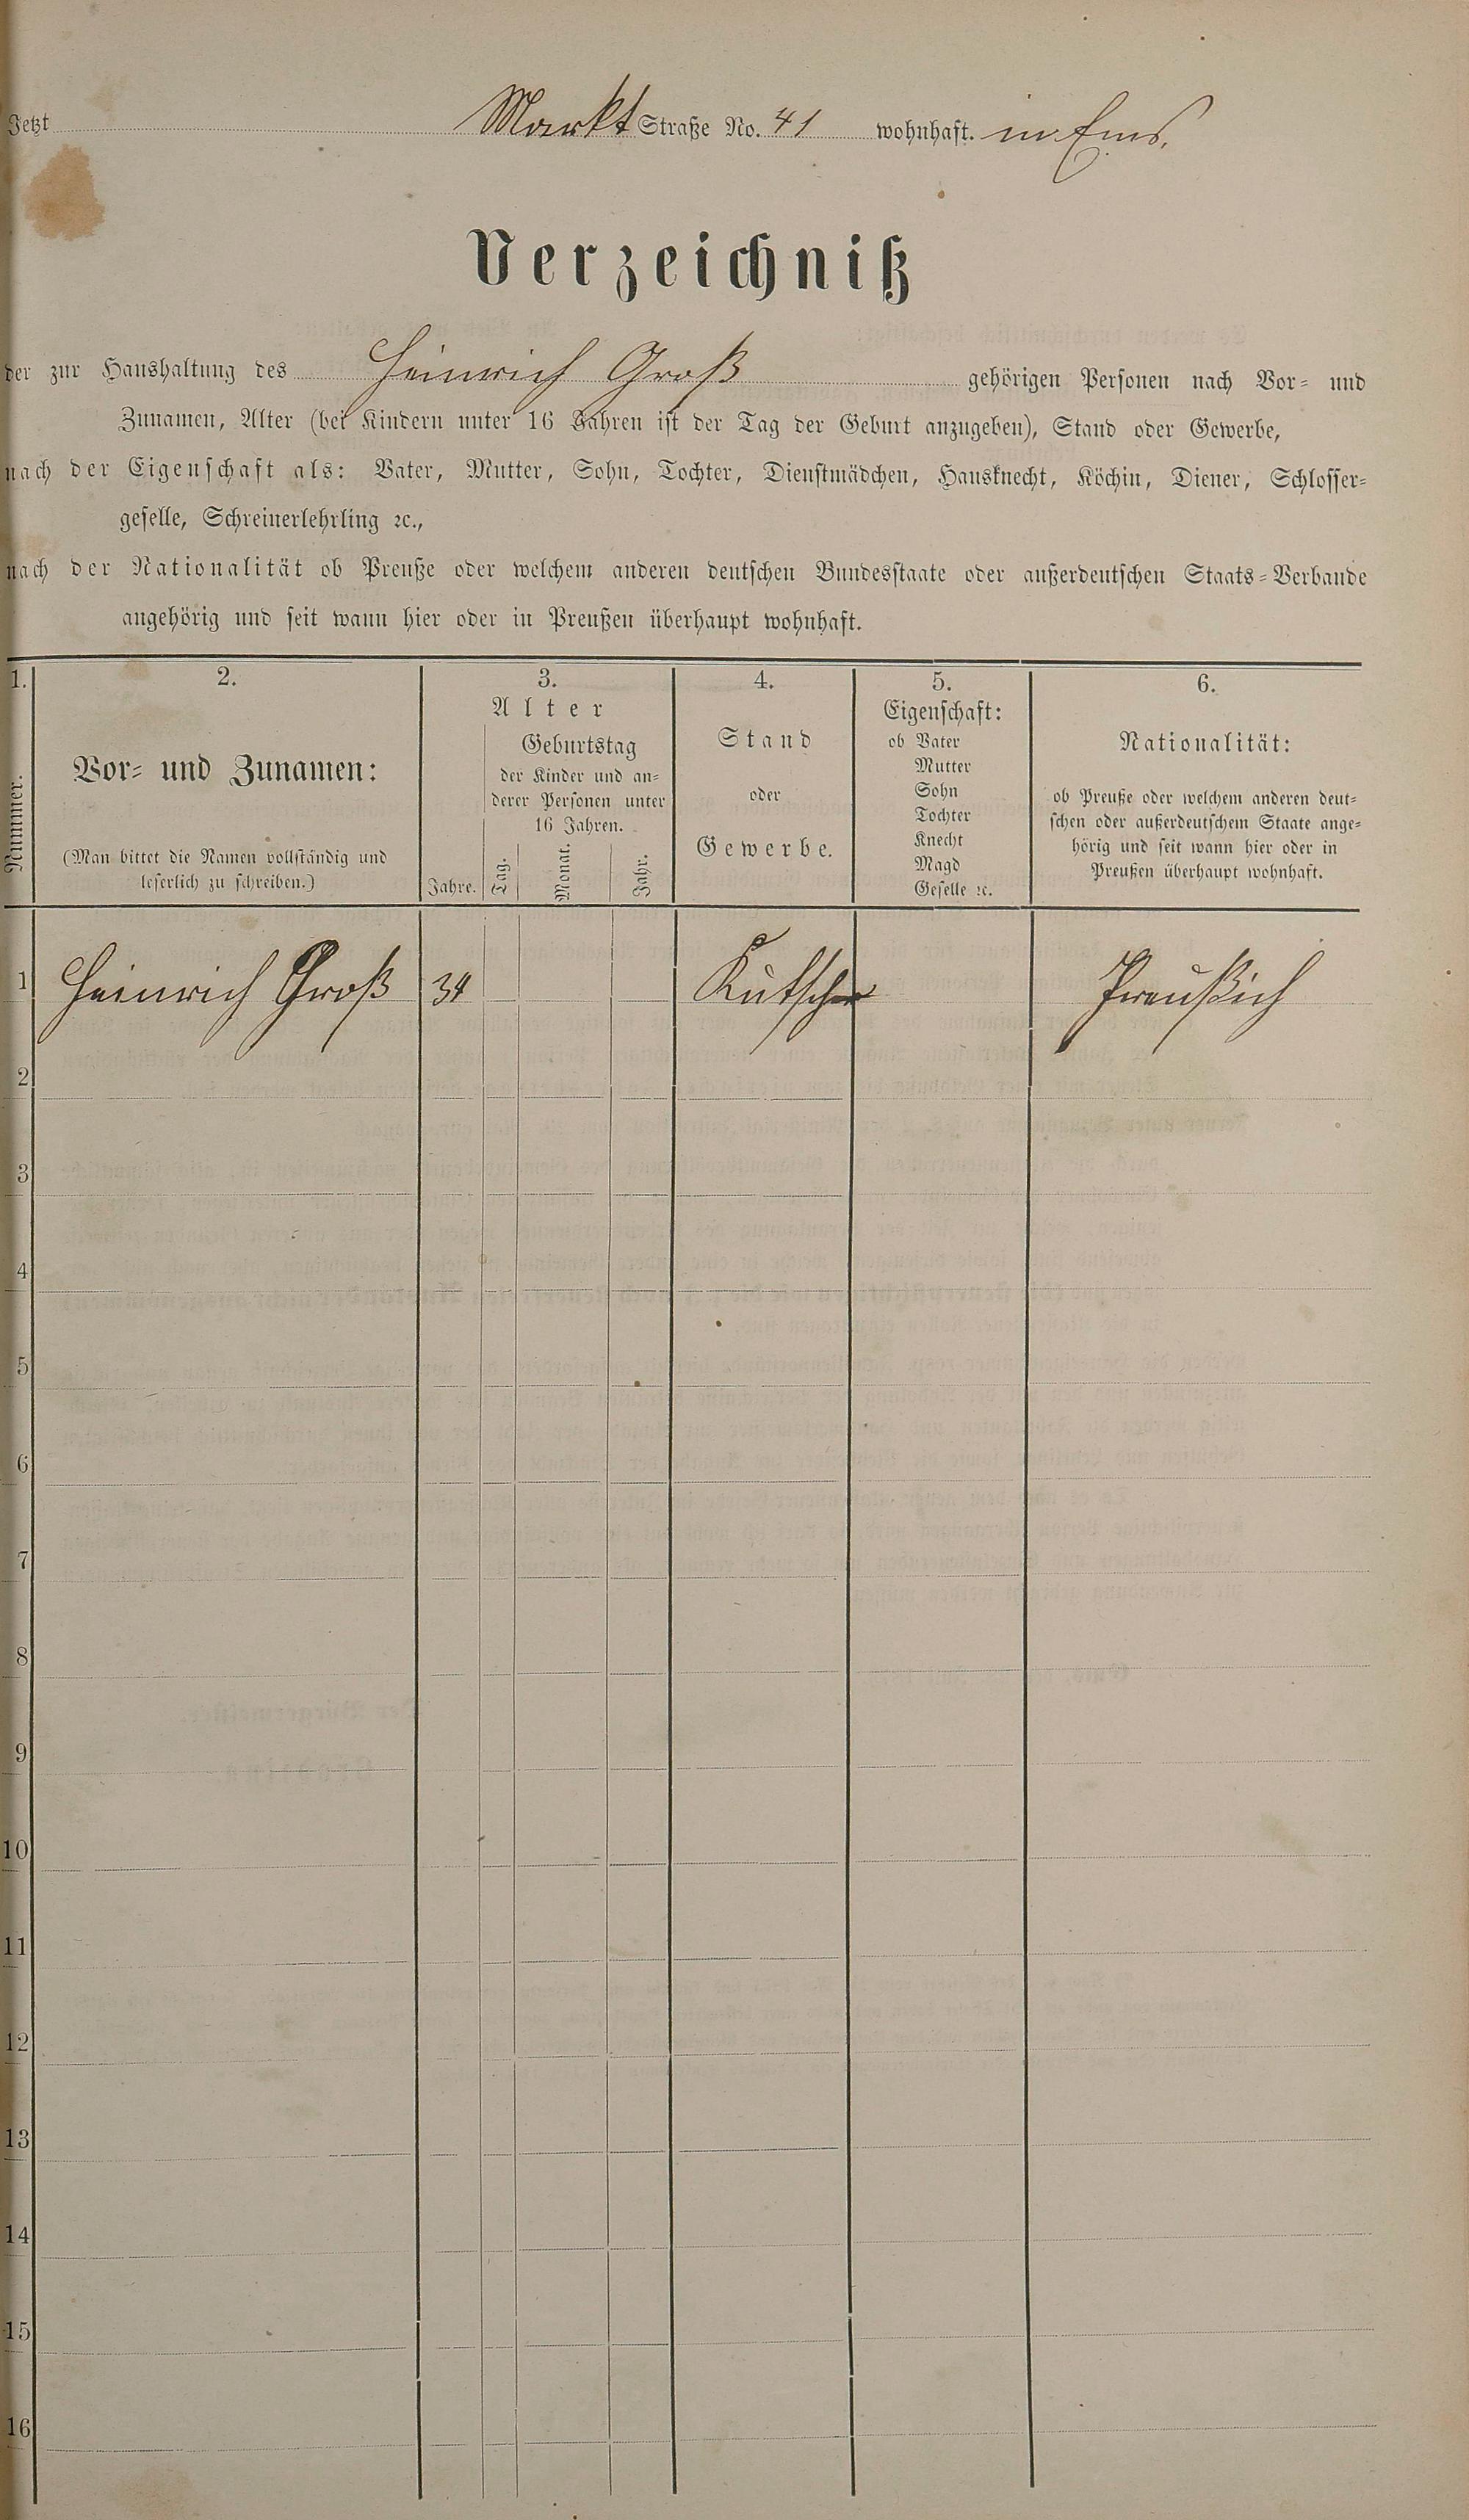 Jetzt Markt Straße No. 41 wohnhaft. in Ems.
Verzeichniß
der zur Haushaltung des Heinrich Groß gehörigen Personen nach Vor- und
Zunamen, Alter (bei Kindern unter 16 Jahren ist der Tag der Geburt anzugeben), Stand oder Gewerbe,
nach der Eigenschaft als: Vater, Mutter, Sohn, Tochter, Dienstmädchen, Hausknecht, Köchin, Diener, Schlosser-
geselle, Schreinerlehrling ꝛc.,
nach der Nationalität ob Preuße oder welchem anderen deutschen Bundesstaate oder außerdeutschen Staats-Verbande
angehörig und seit wann hier oder in Preußen überhaupt wohnhaft.
1.
Nummer.
2.
Vor- und Zunamen:
(Man bittet die Namen vollständig und
leserlich zu schreiben.)
3.
Alter
Jahre.
Geburtstag
der Kinder und an-
derer Personen unter
16 Jahren.
Tag.
Monat.
Jahr.
4.
Stand
oder
Gewerbe.
5.
Eigenschaft:
ob Vater
Mutter
Sohn
Tochter
Knecht
Magd
Geselle ꝛc.
6.
Nationalität:
ob Preuße oder welchem anderen deut-
schen oder außerdeutschem Staate ange-
hörig und seit wann hier oder in
Preußen überhaupt wohnhaft.
1 Heinrich Groß 34 Kutscher Preußich
2
3
4
5
6
7
8
9
10
11
12
13
14
15
16